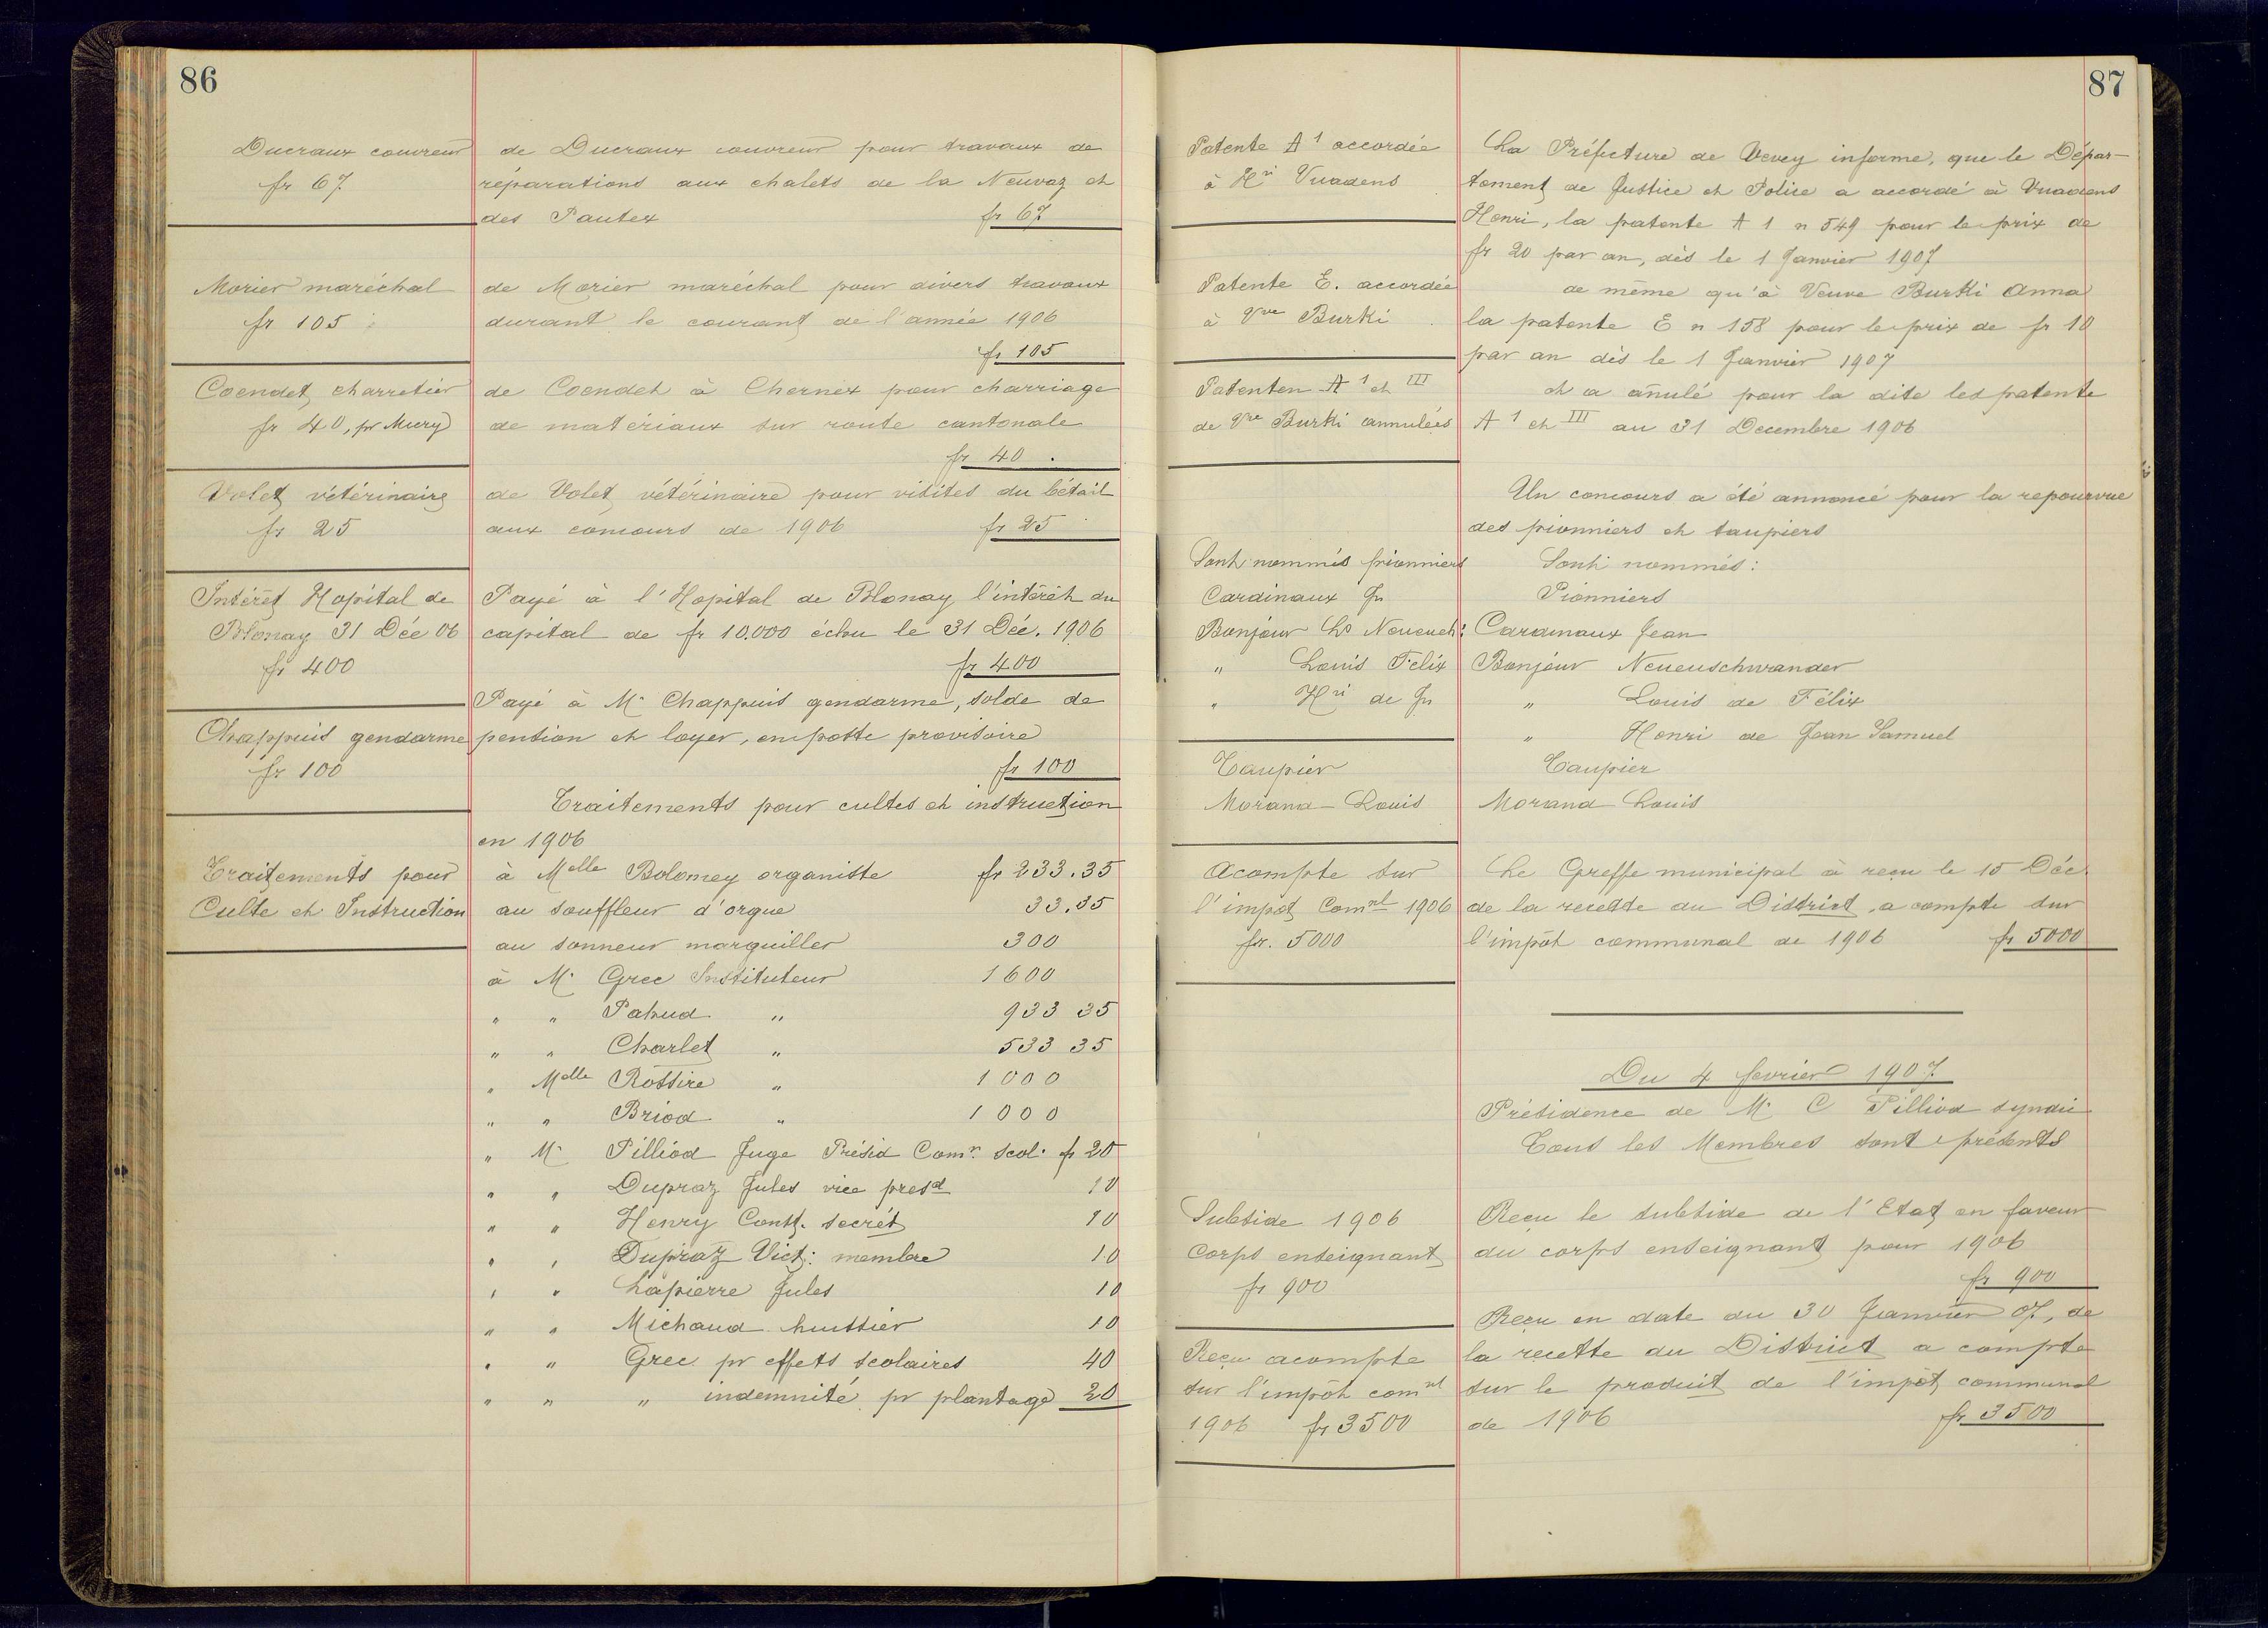 86
Ducraux couvreur
fr 67
de Ducraux couvreur pour travaux de
réparations aux chalets de la Neuvaz et
des Pautex fr 67
Morier maréchal
fr 105
de Morier maréchal pour divers travaux
durant le courant de l'année 1906
fr 105
Coendet charretier
fr 40, pr Mury
de Coendet à Chernex pour charriage
de matériaux sur route cantonale
fr 40.
Volet vétérinaire
fr 25
de Volet vétérinaire pour visites du bétail
aux concours de 1906 fr 25
Intérêt Hopital de
Blonay 31 Déc 06
fr 400
Payé à l'Hopital de Blonay l'intérêt du
capital de fr 10.000 échu le 31 Déc. 1906
fr 400
Chappuis gendarme
fr 100
Payé à Mr Chappuis gendarme, solde de
pention et loyer, en poste provisoire
fr 100
Traitements pour
Culte et Instruction
Traitements pour cultes et instruction
en 1906
à Melle Bolomey organiste fr 233.35
au souffleur d'orgue 33.35
au sonneur marguiller 300
à Mr Grec Instituteur 1600
" " Pahud " 933 35
" " Charlet " 533 35
" Melle Rossire " 1000
" " Briod " 1000
" Mr Pilliod Juge Présid Comn scol. fr 20
" " Dupraz Jules vice presd 10
" " Henry Const. secrét 10
" " Dupraz Vict: membre 10
" " Lapierre Jules 10
" " Michaud huissier 10
" " Grec pr effets scolaires 40
" " " indemnité pr plantage 20
87
Patente A 1 accordée
à Hri Vuadens
La Préfecture de Vevey informe, que le Dépar-
tement de Justice et Police a accordé à Vuadens
Henri, la patente A 1 n 549 pour le prix de
fr 20 par an, dès le 1 Janvier 1907
Patente E. accordée
à Vve Burki
de même qu'à Veuve Burki Anna
la patente E n 158 pour le prix de fr 10
par an dès le 1 Janvier 1907
Patenten A 1 et III
de Vve Burki annulées
et a anulé pour la dite les patente
A 1 et III au 31 Decembre 1906
Un concours a été annoncé pour la repourvue
des pionniers et taupiers
Sont nommés pionniers
Cardinaux Jn
Bonjour Ls Neuench:
" Louis Felix
" Hri de Jn
Sont nommés:
Pionniers
Cardinaux Jean
Bonjour Neuenschwander
" Louis de Félix
" Henri de Jean Samuel
Taupier
Morand-Louis
Taupier
Morand Louis
Acompte sur
l'impot Comnl 1906
fr. 5000
Le Greffe municipal à reçu le 15 Déc
de la recette du District, a compte sur
l'impôt communal de 1906 fr 5000
Du 4 fevrier 1907
Présidence de Mr C Pilliod syndic
Tous les Membres sont présents
Subside 1906
Corps enseignant
fr 900
Reçu le subside de l'Etat en faveur
du corps enseignant pour 1906
fr 900
Reçu acompte
sur l'impôt comnl
1906 fr 3500
Reçu en date du 30 Janvier 07, de
la recette du District a compte
sur le produit de l'impôt communal
de 1906 fr 3500